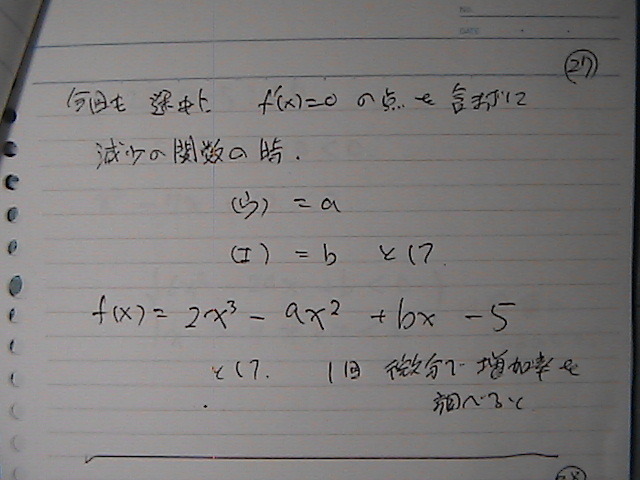 NO.
DATE
27
今回も 逆に f'(x)=0 の点を含まずに
減少の関数の時.
(ウ) = a
(エ) = b として
f(x) = 2x³ - ax² + bx - 5
として. 1回 微分で 増加率を
調べると